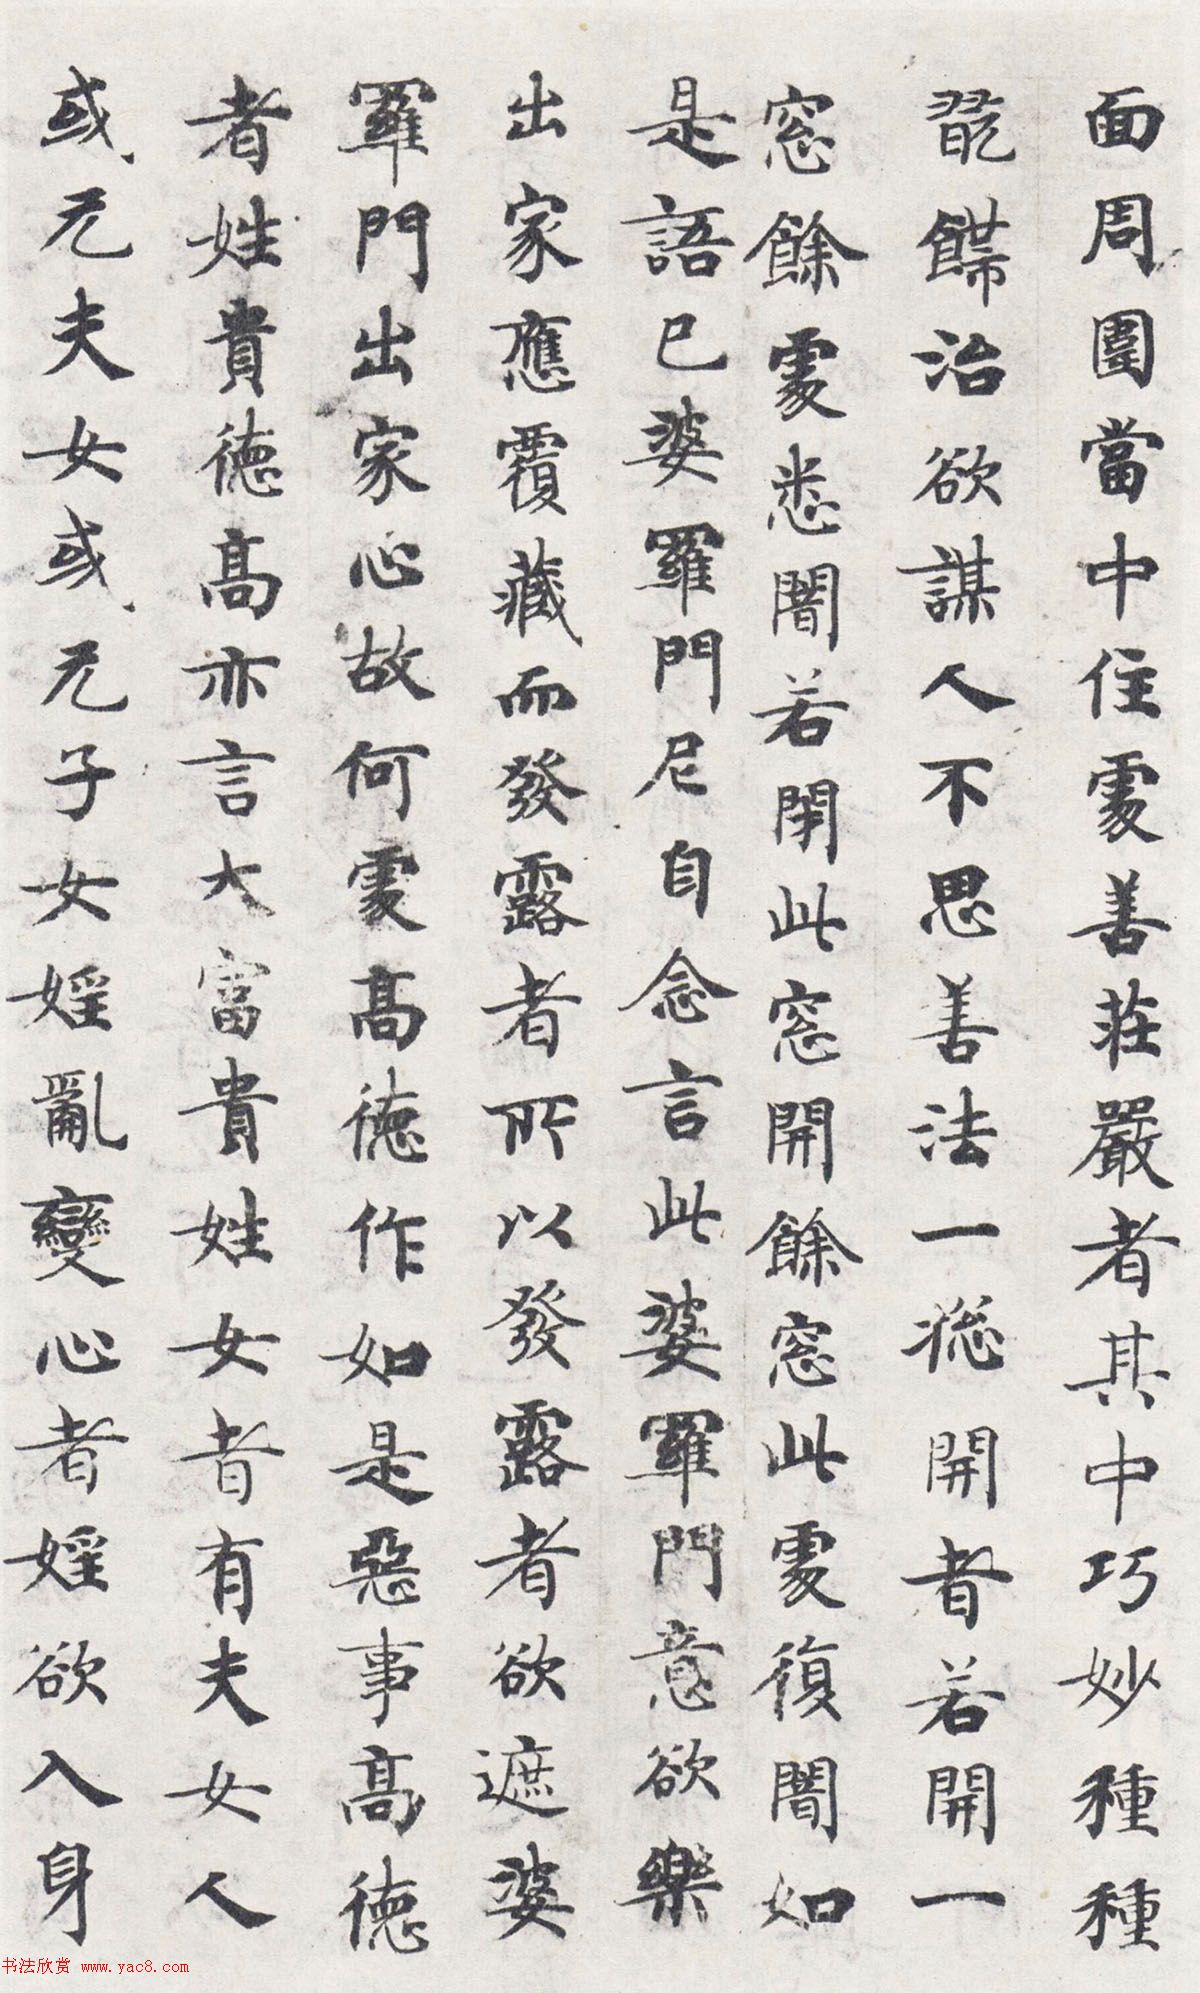 面周圍當中住處善莊嚴者其中巧妙種種
治欲謀人不思善法一㧾開者若開一
窓餘處悉闇若閇此窓開餘窓此處復闇如
是語已婆羅門尼自念言此婆羅門意欲樂
出家應覆藏而發露者所以發露者欲遮婆
羅門出家心故何處高德作如是惡事高德
者姓貴德高亦言大富貴姓女者有夫女人
或无夫女或无子女婬亂變心者婬欲入身
书法欣赏 www.yac8.com